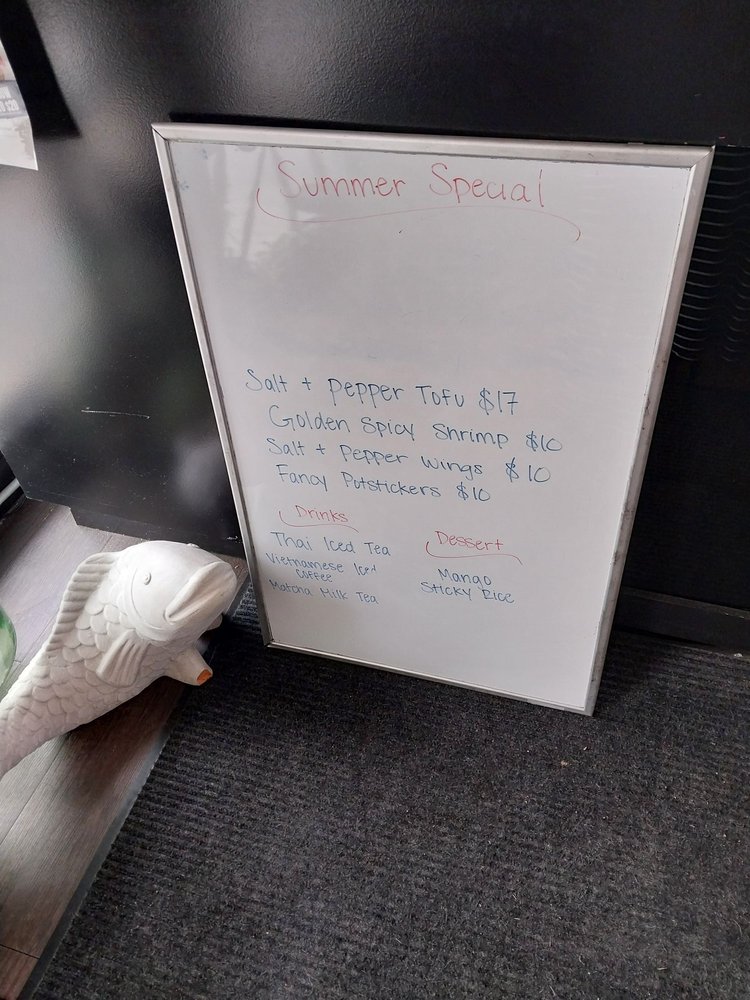 Summer Special
Salt + pepper Tofu $17
Golden Spicy Shrimp $10
Salt + pepper wings $10
Fancy Potstickers $10
Drinks
Thai Iced Tea
Vietnamese Iced
coffee
Matcha Milk Tea
Dessert
Mango
Sticky Rice